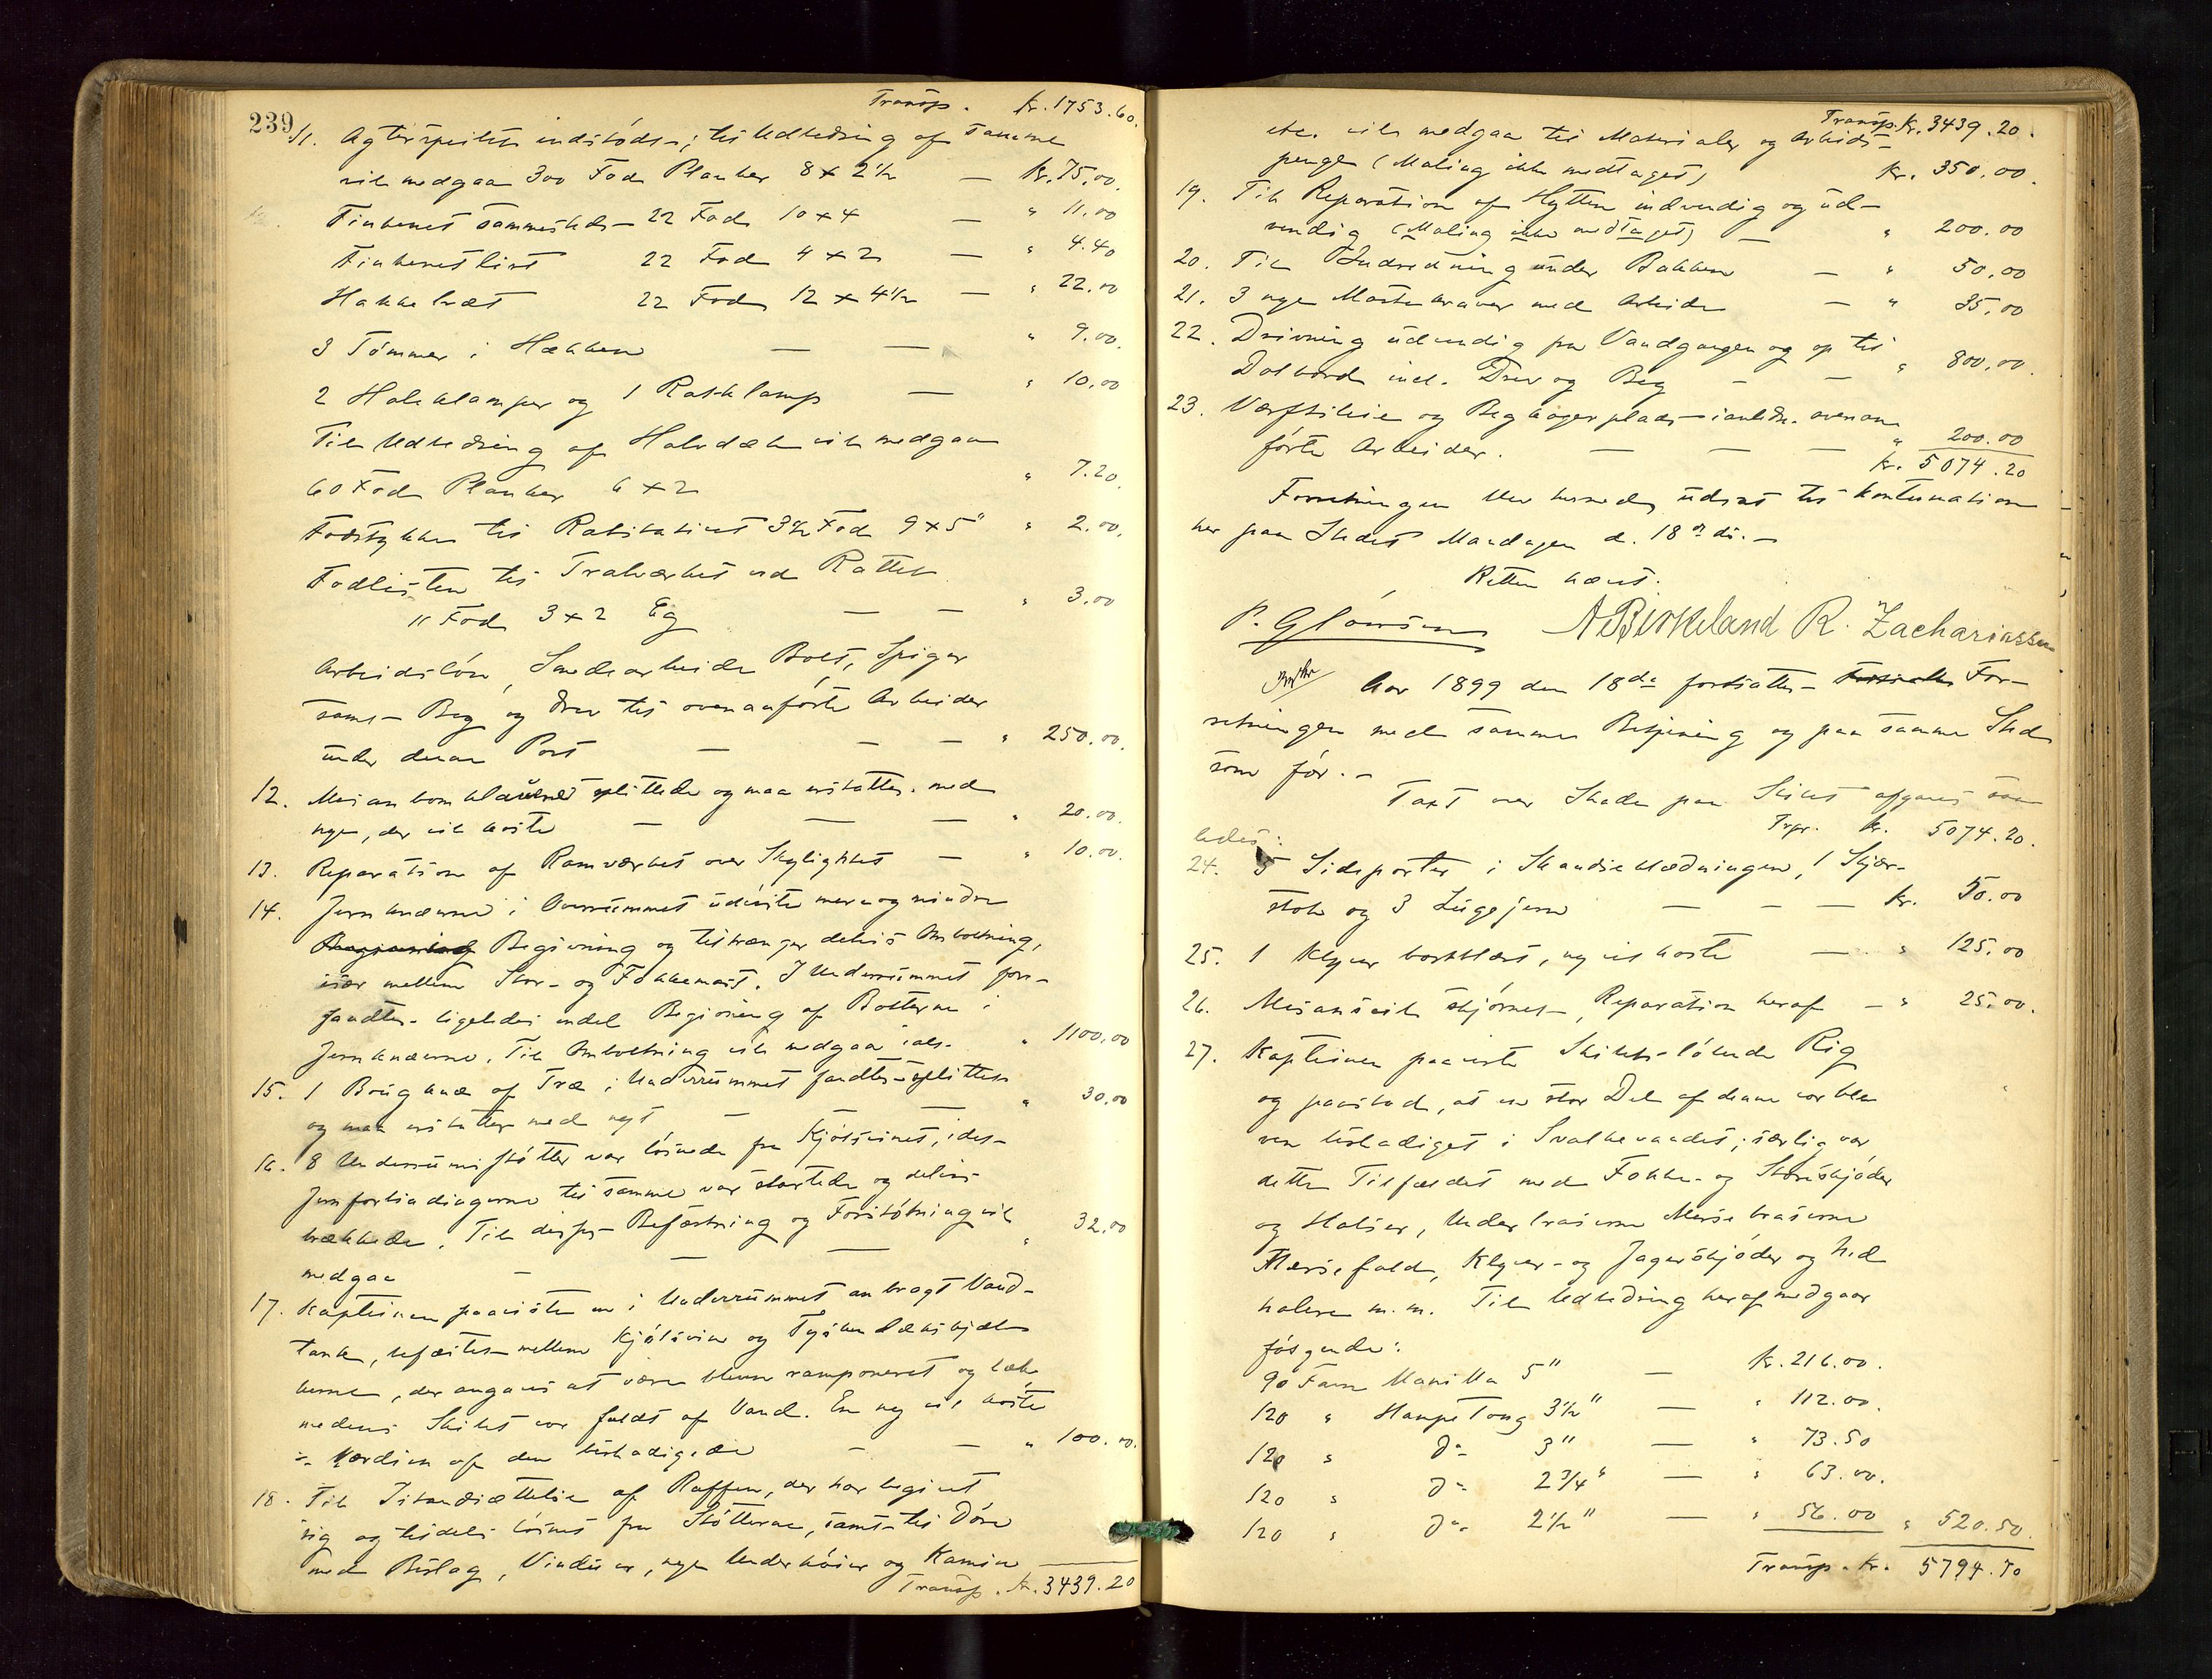 239
Transp. Kr. 1753.60.
11. Agterspeilet indstødt; til Udbedring af samme
vil medgaa 300 Fod Planker 8 x 2½ — Kr. 75.00.
Finkenet sammesteds 22 Fod 10 x 4 — " 11.00
Finkenetlist 22 Fod 4 x 2 — " 4.40
Hakkebræt 22 Fod 12 x 4½ — " 22.00
3 Tømmer i Hækken — — " 9.00.
2 Haleklamper og 1 Rakklamp — " 10.00
Til Udbedring af Halvdæk vil medgaa
60 Fod Planker 6 x 2 " 7.20.
Fodstykker til 3½ Fod 9 x 5" " 2.00.
Fodlisten til Tralværket ved Rattet
11 Fod 3 x 2 Eg — — " 3.00
Arbeidsløn, Smedearbeide Bolt, Spiger
samt Beg og Drev til ovenanførte Arbeider
under denne Post — — — " 250.00.
12. Mesanbom klaven splittede og maa erstattes med
nye, der vil koste — — — " 20.00.
13. Reparation af Ramværket over Skylightet — " 10.00.
14. Jernknærne i Overrummet udviste mere og mindre
Begivning og tiltrænger delvis Omboltning,
især mellem Stor- og Fokkemast. I Underrummet for-
fandtes ligeledes endel Begivning af Boltene i
Jernknærne. Til Omboltning vil medgaa ialt " 1100.00
15. 1 Bougknæ af Træ i Underrummet fandtes splittet
og maa erstattes med nyt — — " 30.00
16. 8 Underrumsstøtter var løsnede fra Kjølsvinet, idet
Jernforbindingerne til samme var slartede og delvis
brækkede. Til disses Befæstning og Forstøtning vil
medgaa — — — " 32.00
17. Kapteinen paaviste en i Underrummet anbragt Vand-
tank, befæstet mellem Kjølsvin og Tvisken Dæksbjæl-
kerne, der angaves at være bleven ramponeret og læk
medens Skibet var fuldt af Vand. En ny vil koste
÷ Værdien af den beskadigede — — " 100.00.
18. Til Istandsættelse af Ruffen, der har begivet
sig og tildels løsnet fra Støtterne, samt til Døre
med Beslag, Vinduer, nye Underkøier og Kamin
Transp. Kr. 3439.20
Transp. Kr. 3439.20.
etc. vil medgaa til Materialer og Arbeids-
penge (Maling ikke medtaget) Kr. 350.00.
19. Til Reparation af Hytten indvendig og ud-
vendig (Maling ikke medtaget) — " 200.00
20. Til Indredning under Bakken — " 50.00
21. 3 nye Mastekraver med Arbeide — " 35.00
22. Drivning udvendig fra Vandgangen og op til
Dolbord incl. Drev og Beg — — " 800.00.
23. Værftsleie og Begkogerplads ianledn. ovenan-
førte Arbeider. — — — " 200.00
Kr. 5074.20
Forretningen blev hermed udsat til Kontinuation
her paa Stedet Mandagen d. 18de ds. —
Retten hævet.
P. Glønsen A Birkeland R. Zachariassen
Aar 1899 den 18de fortsattes For-
retningen med samme Betjening og paa samme Sted
som før. —
Taxt over Skade paa Skibet afgaves saa-
ledes: Trpr. Kr. 5074.20.
24. 5 Sideporter i Skandseklædningen, 1 Skjær-
stok og 3 Lugejern — — — Kr. 50.00
25. 1 Klyver bortblæst, ny vil koste — " 125.00
26. Mesanseil skjørnet, Reparation heraf — " 25.00.
27. Kapteinen paaviste Skibets løbende Rig
og paastod, at en stor Del af denne var ble-
ven beskadiget i Svalkevandet; særlig var
dette Tilfældet med Fokke- og Storeskjøder
og Halser, Underbraserne Mersebraserne
Mersefald, Klyver- og Jagerskjøder og Ned-
halere m.m. Til Udbedring heraf medgaar
følgende:
90 Favn Manilla 5" — Kr. 216.00.
120 " Hampe Toug 3½" — " 112.00.
120 " do 3" — " 73.50
120 " do 2¾" — " 63.00.
120 " do 2½" — " 56.00 " 520.50.
Transp. Kr. 5794.70